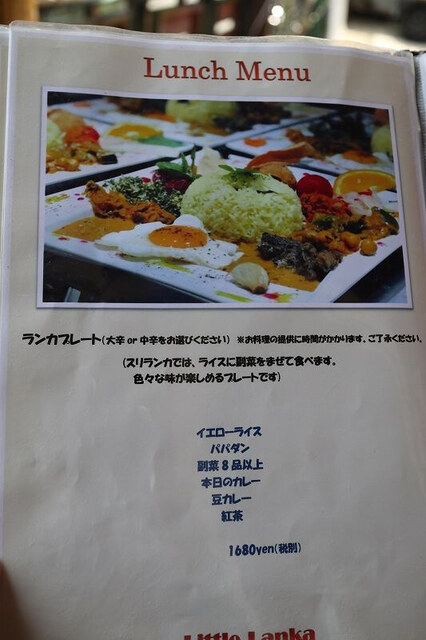 Lunch Menu
ランカプレート(大辛 or 中辛をお選びください) ※お料理の提供に時間がかかります。ご了承ください。
(スリランカでは、ライスに副菜をまぜて食べます。
色々な味が楽しめるプレートです)
イエローライス
パパダン
副菜8品以上
本日のカレー
豆カレー
紅茶
1680yen(税別)
Little Lanka